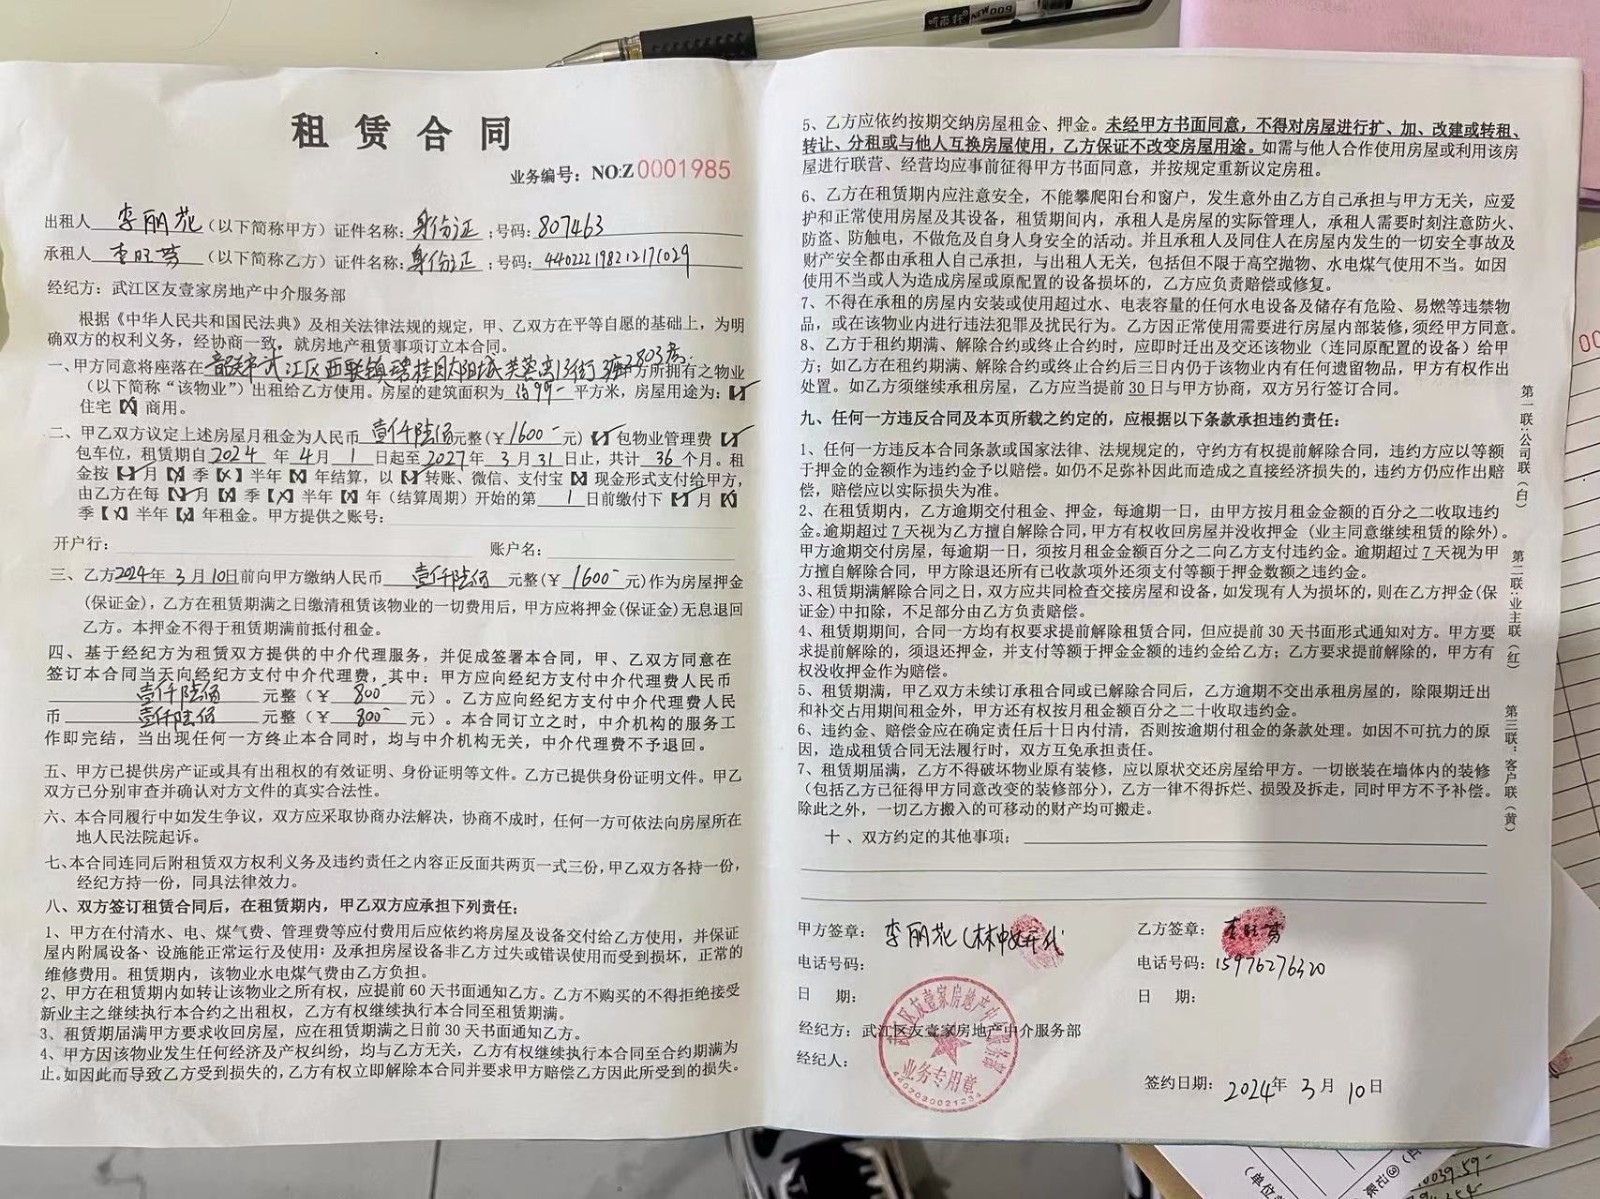 租赁合同
业务编号：NO:Z0001985
出租人 李丽花（以下简称甲方）证件名称：身份证；号码：807463
承租人 李旺芳（以下简称乙方）证件名称：身份证；号码：440222198212171029
经纪方：武江区友壹家房地产中介服务部
根据《中华人民共和国民法典》及相关法律法规的规定，甲、乙双方在平等自愿的基础上，为明
确双方的权利义务，经协商一致，就房地产租赁事项订立本合同。
一、甲方同意将座落在韶关市武江区西联镇碧桂园太阳城芙蓉高 街 座2803房 方所拥有之物业
（以下简称“该物业”）出租给乙方使用。房屋的建筑面积为 99- 平方米，房屋用途为：【✓】
住宅【×】商用。
二、甲乙双方议定上述房屋月租金为人民币 壹仟陆佰元整(￥1600-元)【✓】包物业管理费【✓】
包车位，租赁期自2024年4月1日起至2027年3月31日止，共计36个月。租
金按【✓】月【×】季【×】半年【×】年结算，以【✓】转账、微信、支付宝【×】现金形式支付给甲方，
由乙方在每【✓】月【×】季【×】半年【×】年（结算周期）开始的第1日前缴付下【✓】月【×】
季【×】半年【×】年租金。甲方提供之账号：
开户行： 账户名：
三、乙方2024年3月10日前向甲方缴纳人民币 壹仟陆佰 元整(￥1600-元)作为房屋押金
(保证金)，乙方在租赁期满之日缴清租赁该物业的一切费用后，甲方应将押金(保证金)无息退回
乙方。本押金不得于租赁期满前抵付租金。
四、基于经纪方为租赁双方提供的中介代理服务，并促成签署本合同，甲、乙双方同意在
签订本合同当天向经纪方支付中介代理费，其中：甲方应向经纪方支付中介代理费人民币
壹仟陆佰 元整（￥800-元）。乙方应向经纪方支付中介代理费人民
币 壹仟陆佰 元整（￥800-元）。本合同订立之时，中介机构的服务工
作即完结，当出现任何一方终止本合同时，均与中介机构无关，中介代理费不予退回。
五、甲方已提供房产证或具有出租权的有效证明、身份证明等文件。乙方已提供身份证明文件。甲乙
双方已分别审查并确认对方文件的真实合法性。
六、本合同履行中如发生争议，双方应采取协商办法解决，协商不成时，任何一方可依法向房屋所在
地人民法院起诉。
七、本合同连同后附租赁双方权利义务及违约责任之内容正反面共两页一式三份，甲乙双方各持一份，
经纪方持一份，同具法律效力。
八、双方签订租赁合同后，在租赁期内，甲乙双方应承担下列责任：
1、甲方在付清水、电、煤气费、管理费等应付费用后应依约将房屋及设备交付给乙方使用，并保证
屋内附属设备、设施能正常运行及使用；及承担房屋设备非乙方过失或错误使用而受到损坏，正常的
维修费用。租赁期内，该物业水电煤气费由乙方负担。
2、甲方在租赁期内如转让该物业之所有权，应提前60天书面通知乙方。乙方不购买的不得拒绝接受
新业主之继续执行本合约之出租权，乙方有权继续执行本合同至租赁期满。
3、租赁期届满甲方要求收回房屋，应在租赁期满之日前30天书面通知乙方。
4、甲方因该物业发生任何经济及产权纠纷，均与乙方无关，乙方有权继续执行本合同至合约期满为
止。如因此而导致乙方受到损失的，乙方有权立即解除本合同并要求甲方赔偿乙方因此所受到的损失。
5、乙方应依约按期交纳房屋租金、押金。未经甲方书面同意，不得对房屋进行扩、加、改建或转租、
转让、分租或与他人互换房屋使用，乙方保证不改变房屋用途。如需与他人合作使用房屋或利用该房
屋进行联营、经营均应事前征得甲方书面同意，并按规定重新议定房租。
6、乙方在租赁期内应注意安全，不能攀爬阳台和窗户，发生意外由乙方自己承担与甲方无关，应爱
护和正常使用房屋及其设备，租赁期间内，承租人是房屋的实际管理人，承租人需要时刻注意防火、
防盗、防触电，不做危及自身人身安全的活动。并且承租人及同住人在房屋内发生的一切安全事故及
财产安全都由承租人自己承担，与出租人无关，包括但不限于高空抛物、水电煤气使用不当。如因
使用不当或人为造成房屋或原配置的设备损坏的，乙方应负责赔偿或修复。
7、不得在承租的房屋内安装或使用超过水、电表容量的任何水电设备及储存有危险、易燃等违禁物
品，或在该物业内进行违法犯罪及扰民行为。乙方因正常使用需要进行房屋内部装修，须经甲方同意。
8、乙方于租约期满、解除合约或终止合约时，应即时迁出及交还该物业（连同原配置的设备）给甲
方；如乙方在租约期满、解除合约或终止合约后三日内仍于该物业内有任何遗留物品，甲方有权作出
处置。如乙方须继续承租房屋，乙方应当提前30日与甲方协商，双方另行签订合同。
九、任何一方违反合同及本页所载之约定的，应根据以下条款承担违约责任：
1、任何一方违反本合同条款或国家法律、法规规定的，守约方有权提前解除合同，违约方应以等额
于押金的金额作为违约金予以赔偿。如仍不足弥补因此而造成之直接经济损失的，违约方仍应作出赔
偿，赔偿应以实际损失为准。
2、在租赁期内，乙方逾期交付租金、押金，每逾期一日，由甲方按月租金金额的百分之二收取违约
金。逾期超过7天视为乙方擅自解除合同，甲方有权收回房屋并没收押金（业主同意继续租赁的除外）。
甲方逾期交付房屋，每逾期一日，须按月租金金额百分之二向乙方支付违约金。逾期超过7天视为甲
方擅自解除合同，甲方除退还所有已收款项外还须支付等额于押金数额之违约金。
3、租赁期满解除合同之日，双方应共同检查交接房屋和设备，如发现有人为损坏的，则在乙方押金(保
证金)中扣除，不足部分由乙方负责赔偿。
4、租赁期期间，合同一方均有权要求提前解除租赁合同，但应提前30天书面形式通知对方。甲方要
求提前解除的，须退还押金，并支付等额于押金金额的违约金给乙方；乙方要求提前解除的，甲方有
权没收押金作为赔偿。
5、租赁期满，甲乙双方未续订承租合同或已解除合同后，乙方逾期不交出承租房屋的，除限期迁出
和补交占用期间租金外，甲方还有权按月租金额百分之二十收取违约金。
6、违约金、赔偿金应在确定责任后十日内付清，否则按逾期付租金的条款处理。如因不可抗力的原
因，造成租赁合同无法履行时，双方互免承担责任。
7、租赁期届满，乙方不得破坏物业原有装修，应以原状交还房屋给甲方。一切嵌装在墙体内的装修
（包括乙方已征得甲方同意改变的装修部分），乙方一律不得拆烂、损毁及拆走，同时甲方不予补偿。
除此之外，一切乙方搬入的可移动的财产均可搬走。
十、双方约定的其他事项：
甲方签章：李丽花（林 代 乙方签章：李旺芳
电话号码： 电话号码：15976276320
日 期： 日 期：
经纪方：武江区友壹家房地产中介服务部
经纪人：
签约日期：2024年3月10日
武江区友壹家房地产中介服务部
业务专用章
4402030021234
第一联：公司联（白）
第二联：业主联（红）
第三联：客户联（黄）